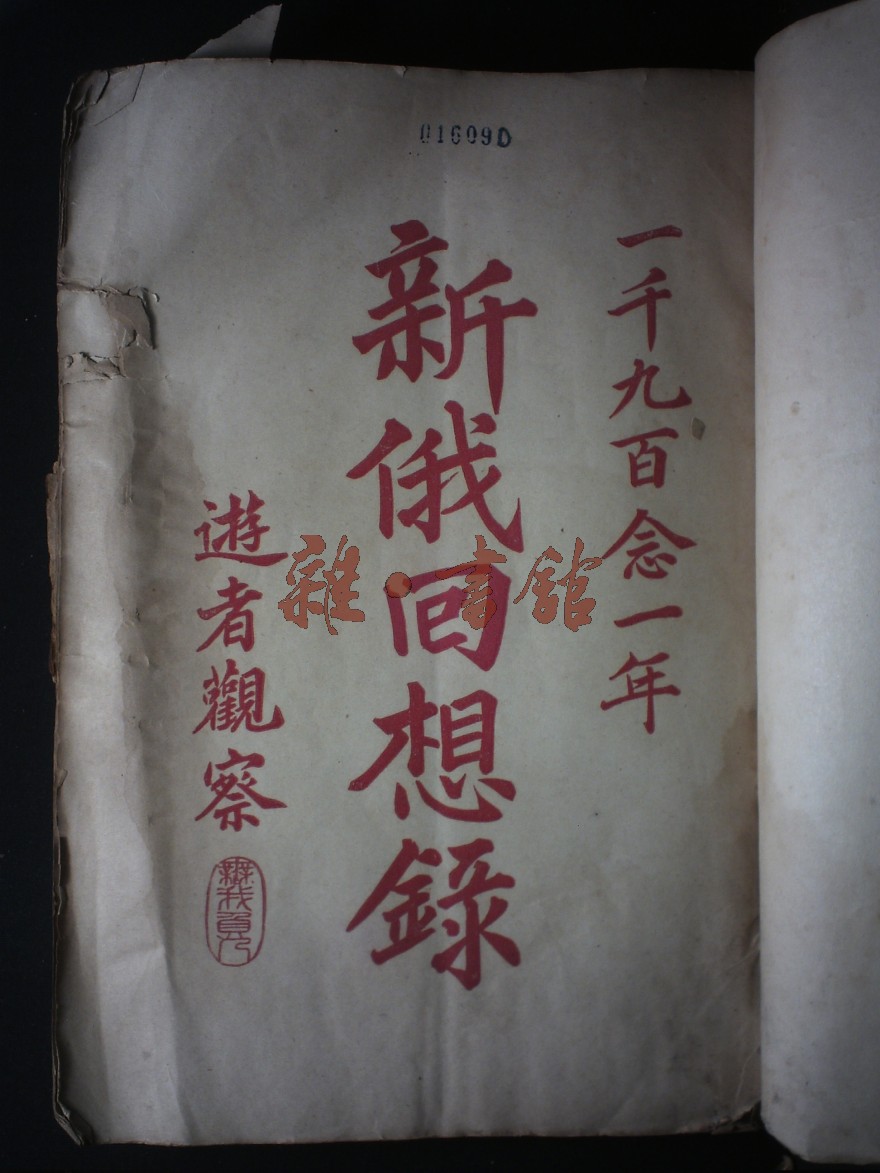 01609D
一千九百念一年
新俄回想錄
遊者觀察
雜·書館